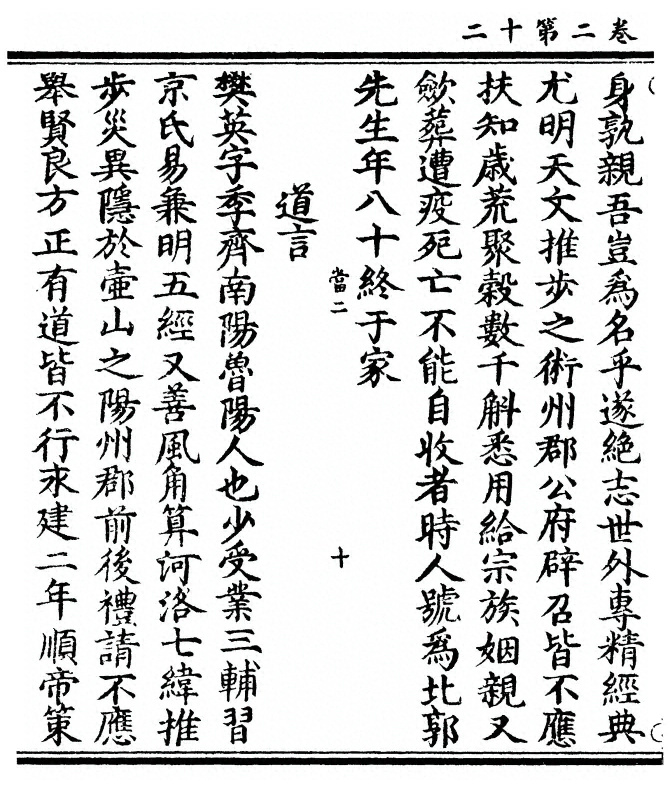 卷二第十二
身孰親吾豈爲名乎遂絶志世外專精經典
尤明天文推步之術州郡公府辟召皆不應
扶知歲荒聚穀數千斛悉用給宗族姻親又
歛葬遭疫死亡不能自收者時人號爲北郭
先生年八十終于家
當二
十
道言
樊英字季齊南陽魯陽人也少受業三輔習
京氏易兼明五經又善風角算河洛七緯推
步災異隱於壷山之陽州郡前後禮請不應
舉賢良方正有道皆不行永建二年順帝策